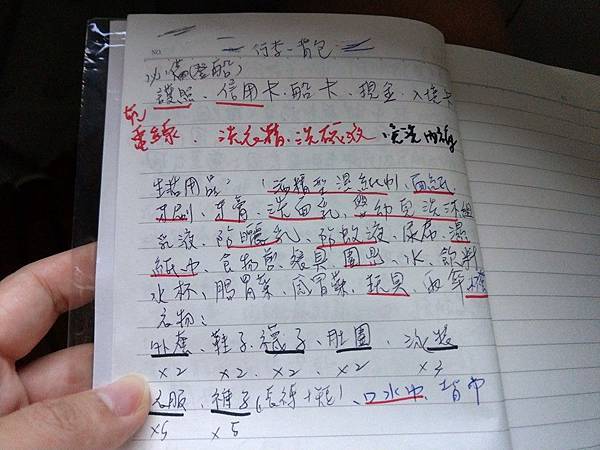 NO.
行李-背包
必備(登船)
護照、信用卡、船卡、現金、入境卡
電線、洗衣精、洗碗液、換洗內褲
生活用品: 酒精型濕紙巾、面紙、
牙刷、牙膏、洗面乳、嬰幼兒洗沐組
乳液、防曬乳、防蚊液、尿布、濕
紙巾、食物剪、餐具、圍兜、水、飲料
水杯、腸胃藥、感冒藥、玩具、雨傘
衣物:
外套、鞋子、襪子、肚圍、泳裝
x2 x2 x2 x2
衣服、褲子(長褲+短)、口水巾、背巾
x5 x5